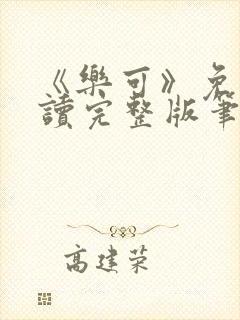 《樂可》免
讀完整版筆
高建荣